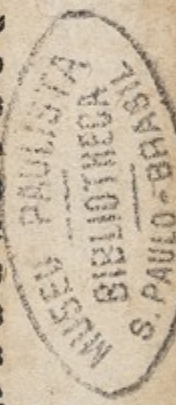 MUSEU PAULISTA
BIBLIOTHECA
S. PAULO-BRASIL